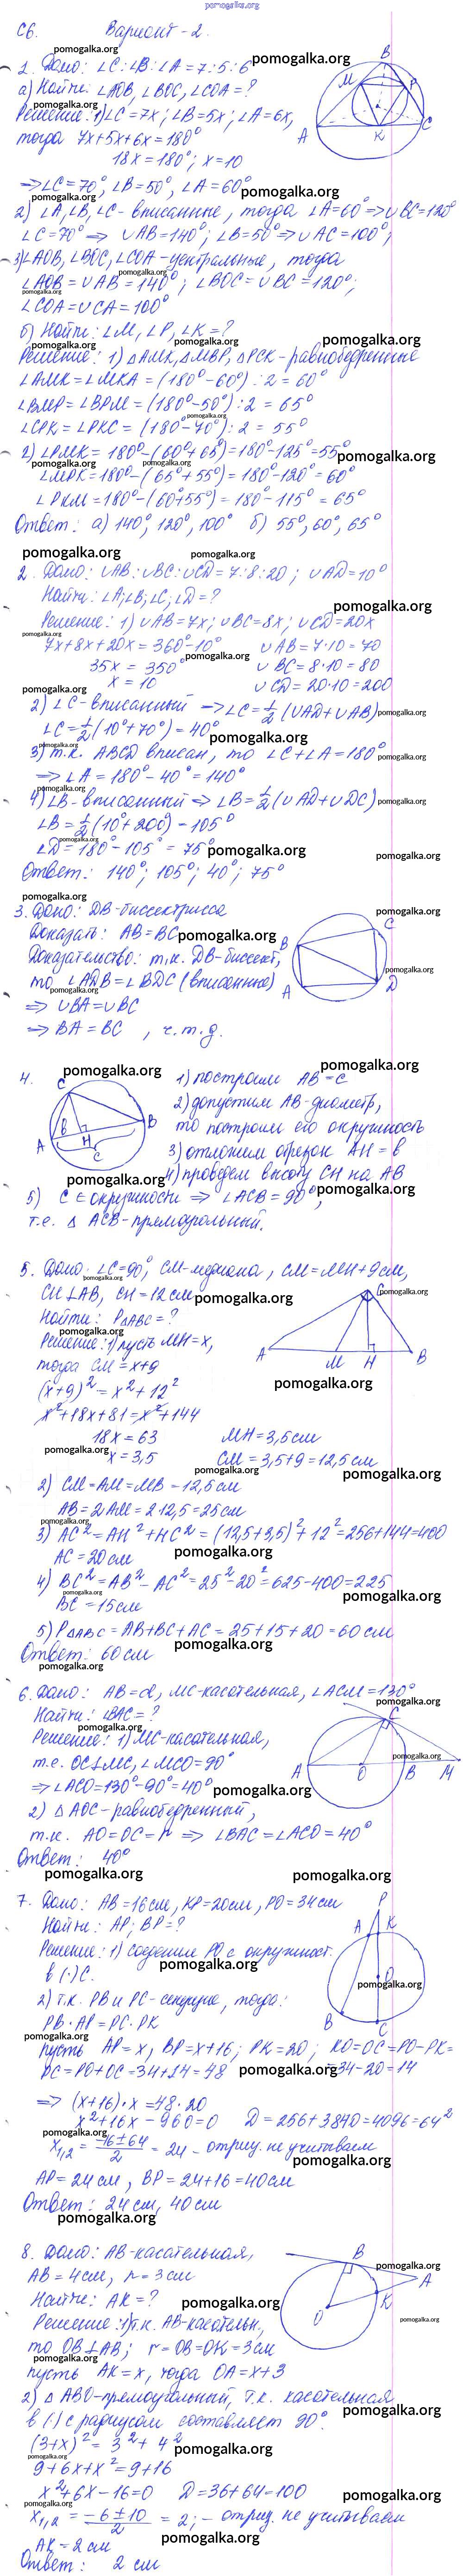 pomogalka.org
С6. Вариант - 2.
1. Дано: ∠C:∠B:∠A = 7:5:6
а) Найти: ∠AOB, ∠BOC, ∠COA = ?
Решение: 1) ∠C = 7x; ∠B = 5x, ∠A = 6x,
тогда 7x + 5x + 6x = 180°
18x = 180°; x = 10
⇒ ∠C = 70°, ∠B = 50°, ∠A = 60°
2) ∠A, ∠B, ∠C - вписанные, тогда ∠A = 60° ⇒ ∪BC = 120°
∠C = 70° ⇒ ∪AB = 140°; ∠B = 50° ⇒ ∪AC = 100°;
3) ∠AOB, ∠BOC, ∠COA - центральные, тогда
∠AOB = ∪AB = 140°; ∠BOC = ∪BC = 120°;
∠COA = ∪CA = 100°
б) Найти: ∠M, ∠P, ∠K = ?
Решение: 1) △AMK, △MBP, △PCK - равнобедренные
∠AMK = ∠MKA = (180° - 60°) : 2 = 60°
∠BMP = ∠BPM = (180° - 50°) : 2 = 65°
∠CPK = ∠PKC = (180° - 70°) : 2 = 55°
2) ∠PMK = 180° - (60° + 65°) = 180° - 125° = 55°
∠MPK = 180° - (65° + 55°) = 180° - 120° = 60°
∠PKM = 180° - (60° + 55°) = 180° - 115° = 65°
Ответ: а) 140°, 120°, 100° б) 55°, 60°, 65°
2. Дано: ∪AB:∪BC:∪CD = 7:8:20; ∪AD = 10°
Найти: ∠A; ∠B; ∠C; ∠D = ?
Решение: 1) ∪AB = 7x; ∪BC = 8x; ∪CD = 20x
7x + 8x + 20x = 360° - 10° ∪AB = 7·10 = 70
35x = 350° ∪BC = 8·10 = 80
x = 10 ∪CD = 20·10 = 200
2) ∠C - вписанный ⇒ ∠C = 1/2 (∪AD + ∪AB)
∠C = 1/2 (10° + 70°) = 40°
3) т.к. ABCD вписан, то ∠C + ∠A = 180°
⇒ ∠A = 180° - 40° = 140°
4) ∠B - вписанный ⇒ ∠B = 1/2 (∪AD + ∪DC)
∠B = 1/2 (10° + 200) = 105°
∠D = 180° - 105° = 75°
Ответ: 140°; 105°; 40°; 75°
3. Дано: DB - биссектрисса
Доказать: AB = BC
Доказательство: т.к. DB - биссект,
то ∠ADB = ∠BDC (вписанные)
⇒ ∪BA = ∪BC
⇒ BA = BC, ч.т.д.
4. 1) построим AB = c
2) допустим AB - диаметр,
то построим его окружность
3) отложим отрезок AH = b
4) проведем высоту CH на AB
5) C ∈ окружности ⇒ ∠ACB = 90°,
т.е. △ ACB - прямоугольный.
5. Дано: ∠C = 90°, CM - медиана, CM = MH + 9 см,
CH ⊥ AB, CH = 12 см
Найти: P△ABC = ?
Решение: 1) пусть MH = x,
тогда CM = x + 9
(x + 9)² = x² + 12²
x² + 18x + 81 = x² + 144
18x = 63 MH = 3,5 см
x = 3,5 CM = 3,5 + 9 = 12,5 см
2) CM = AM = MB = 12,5 см
AB = 2AM = 2·12,5 = 25 см
3) AC² = AH² + HC² = (12,5 + 3,5)² + 12² = 256 + 144 = 400
AC = 20 см
4) BC² = AB² - AC² = 25² - 20² = 625 - 400 = 225
BC = 15 см
5) P△ABC = AB + BC + AC = 25 + 15 + 20 = 60 см
Ответ: 60 см
6. Дано: AB = d, MC - касательная, ∠ACM = 130°
Найти: ∠BAC = ?
Решение: 1) MC - касательная,
т.е. OC ⊥ MC, ∠MCO = 90°
⇒ ∠ACO = 130° - 90° = 40°
2) △ AOC - равнобедренный,
т.к. AO = OC = r ⇒ ∠BAC = ∠ACO = 40°
Ответ: 40°
7. Дано: AB = 16 см, KP = 20 см, PO = 34 см
Найти: AP; BP = ?
Решение: 1) Соединим PO с окружност.
в (·) C.
2) т.к. PB и PC - секущие, тогда:
PB · AP = PC · PK
пусть AP = x, BP = x + 16; PK = 20; KO = OC = PO - PK =
PC = PO + OC = 34 + 14 = 48 = 34 - 20 = 14
⇒ (x + 16) · x = 48 · 20
x² + 16x - 960 = 0 D = 256 + 3840 = 4096 = 64²
x₁,₂ = (-16 ± 64)/2 = 24 - отриц. не учитываем
AP = 24 см, BP = 24 + 16 = 40 см
Ответ: 24 см, 40 см
8. Дано: AB - касательная,
AB = 4 см, r = 3 см
Найти: AK = ?
Решение: 1) т.к. AB - касательн.,
то OB ⊥ AB; r = OB = OK = 3 см
пусть AK = x, тогда OA = x + 3
2) △ ABO - прямоугольный, т.к. касательная
в (·) с радиусом составляет 90°.
(3 + x)² = 3² + 4²
9 + 6x + x² = 9 + 16
x² + 6x - 16 = 0 D = 36 + 64 = 100
x₁,₂ = (-6 ± 10)/2 = 2; - отриц. не учитываем
AK = 2 см
Ответ: 2 см